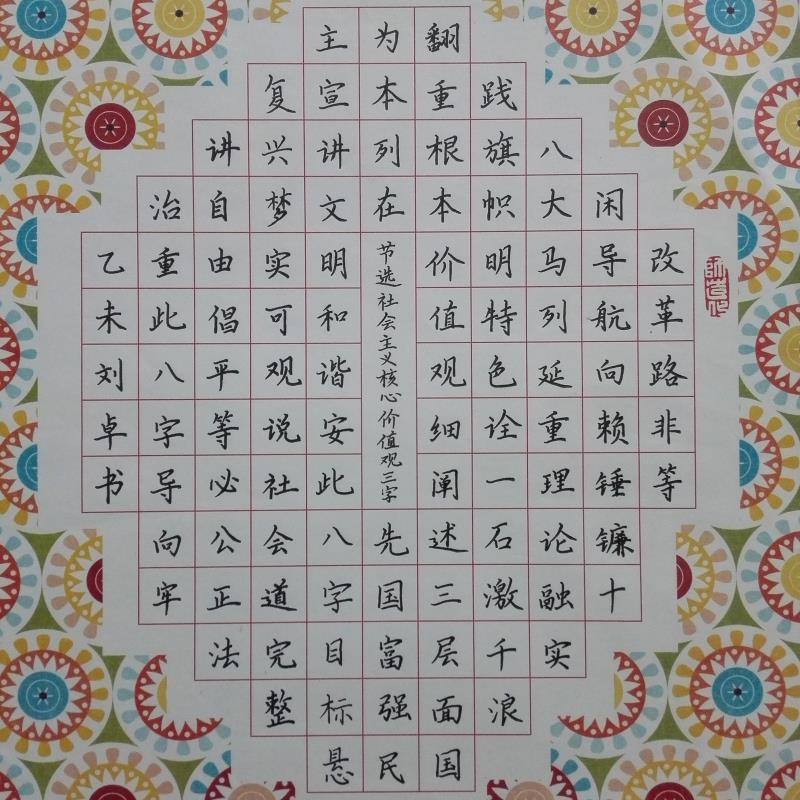 改革路非等
闲导航向赖锤镰十
八大马列延重理论融实
践旗帜明特色诠一石激千浪
翻重根本价值观细阐述三层面国
为本列在
节选社会主义核心价值观三字
先国富强民
主宣讲文明和谐安此八字目标悬
复兴梦实可观说社会道完整
讲自由倡平等必公正法
治重此八字导向牢
乙未刘卓书
师造化